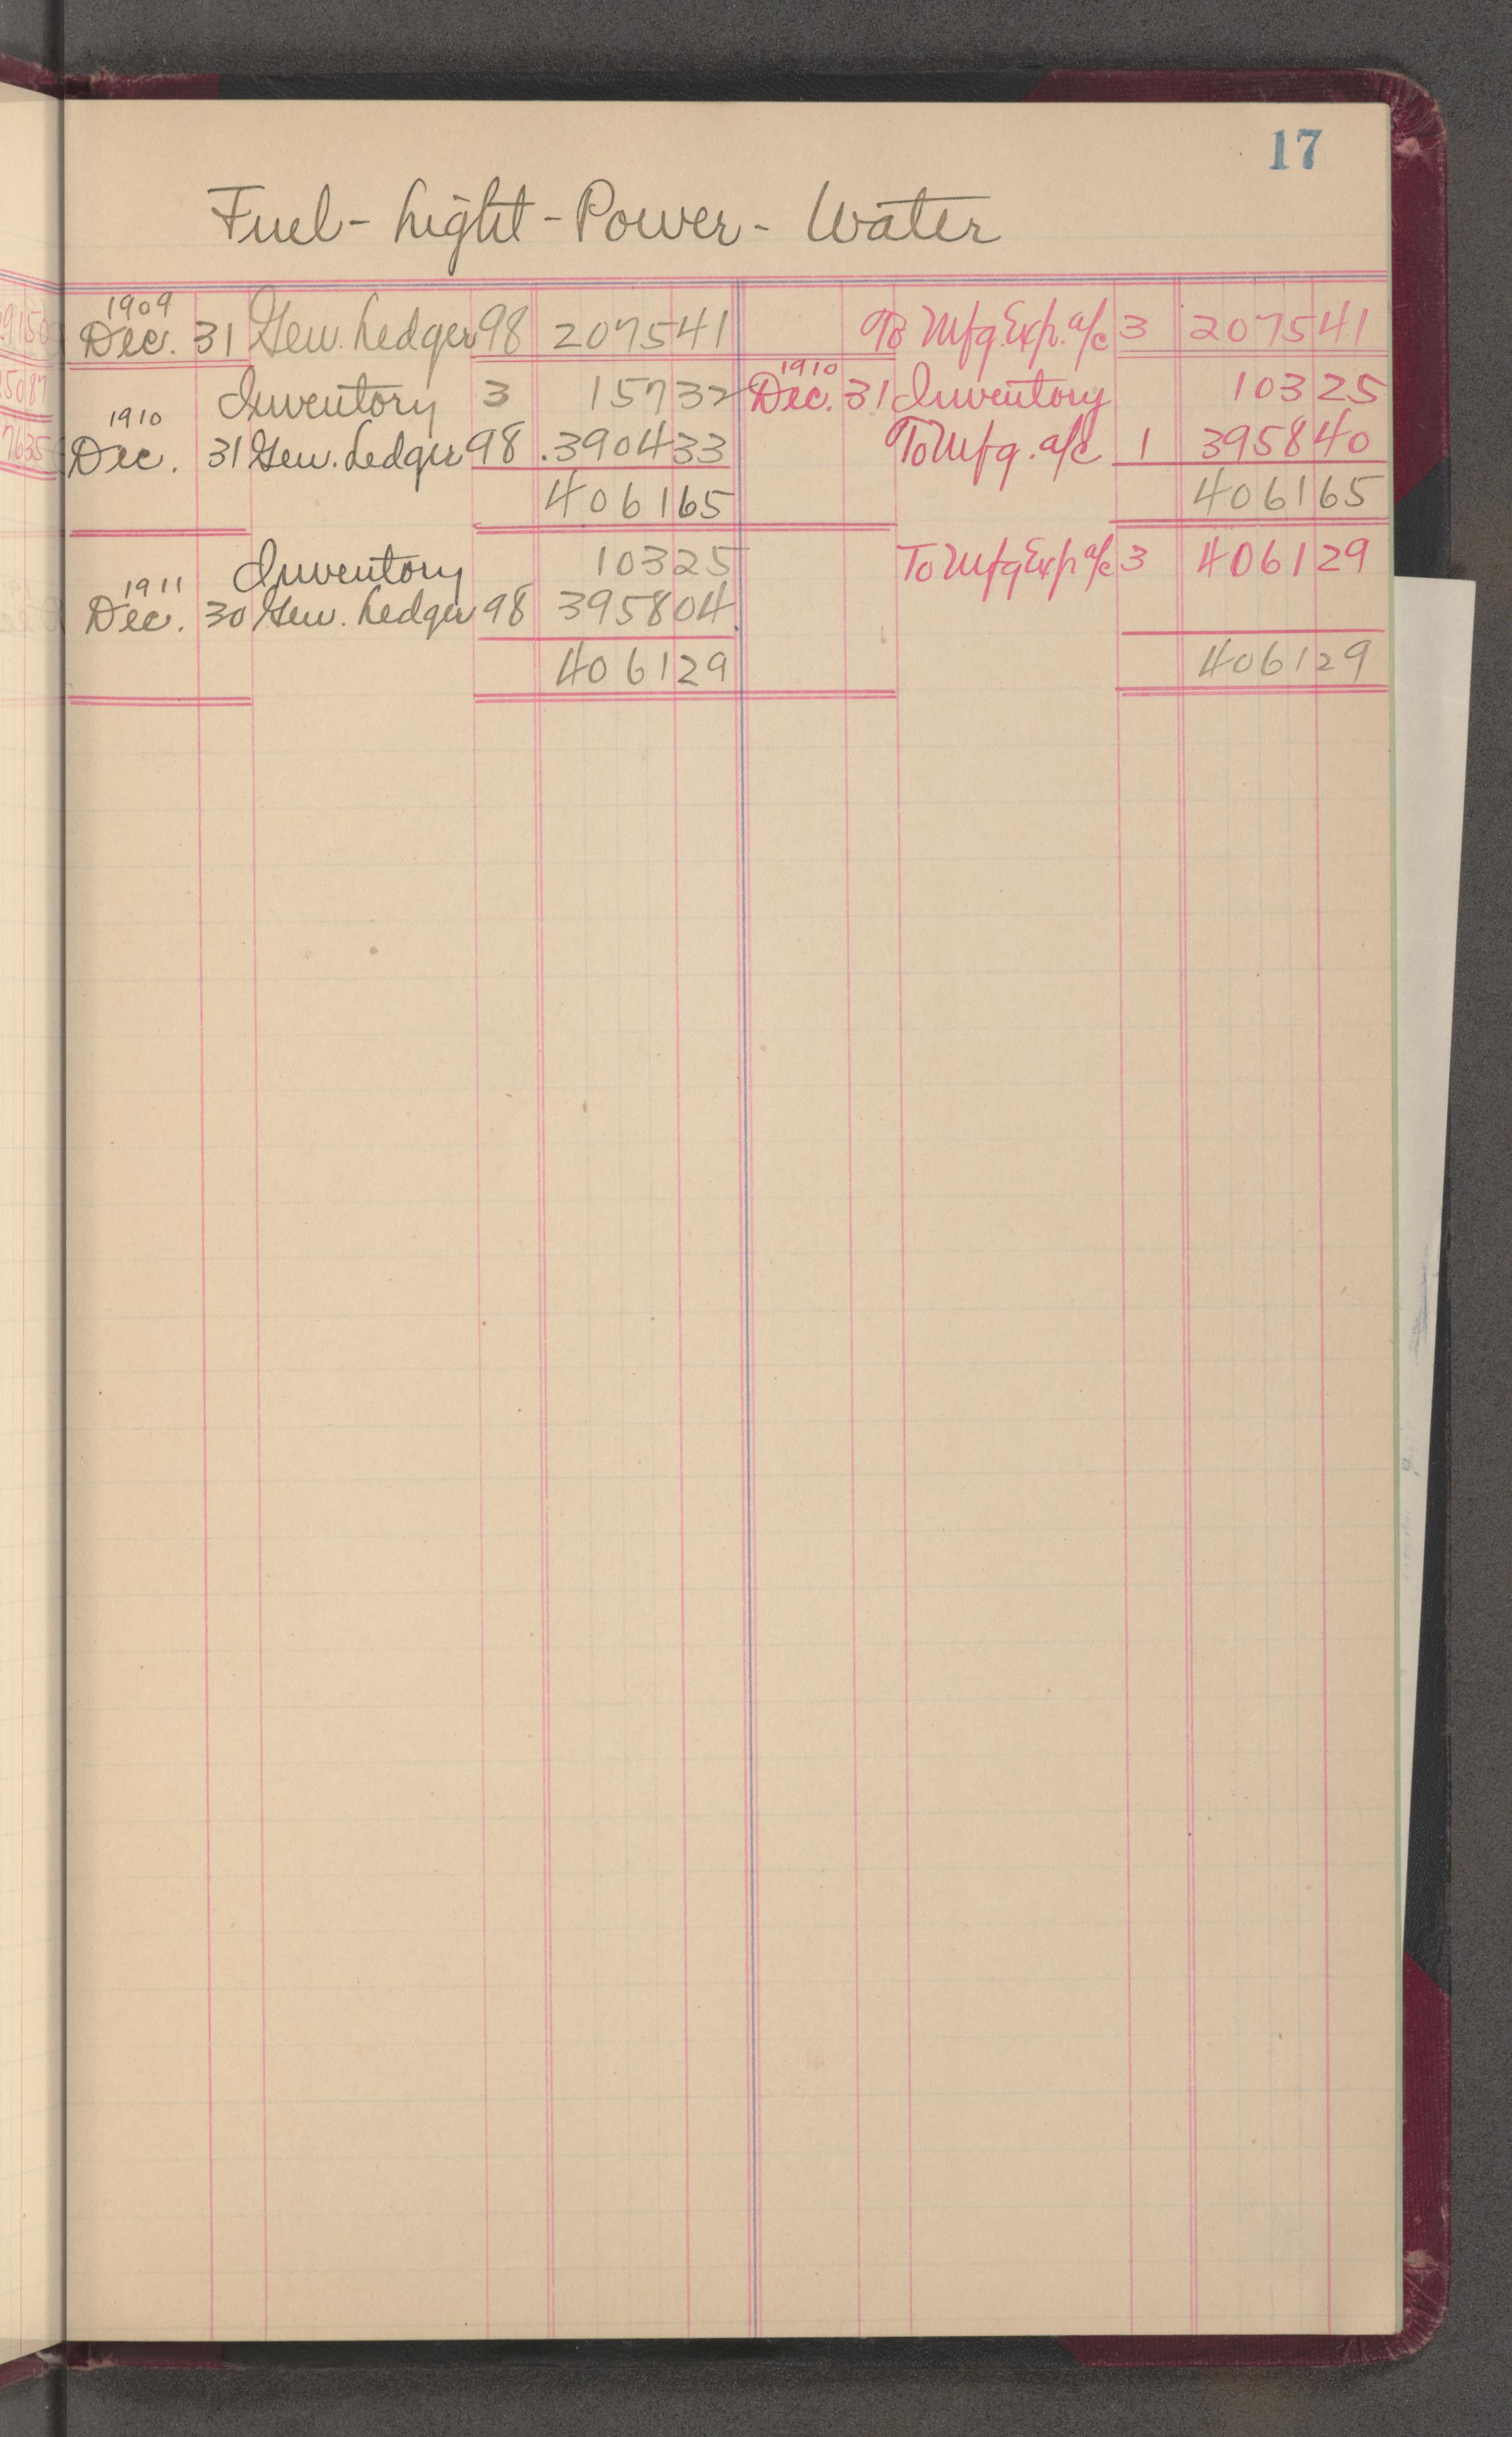 17
Fuel - Light - Power - Water
1909
Dec. 31 Gen. Ledger 98 2075 41 To Mfg. Exp. a/c 3 2075 41
1910
Inventory 3 157 32 Dec. 31 Inventory 103 25
1910
Dec. 31 Gen. Ledger 98 3904 33 To Mfg. a/c 1 3958 40
4061 65 4061 65
Inventory 103 25 To Mfg Exp a/c 3 4061 29
1911
Dec. 30 Gen. Ledger 98 3958 04
4061 29 4061 29